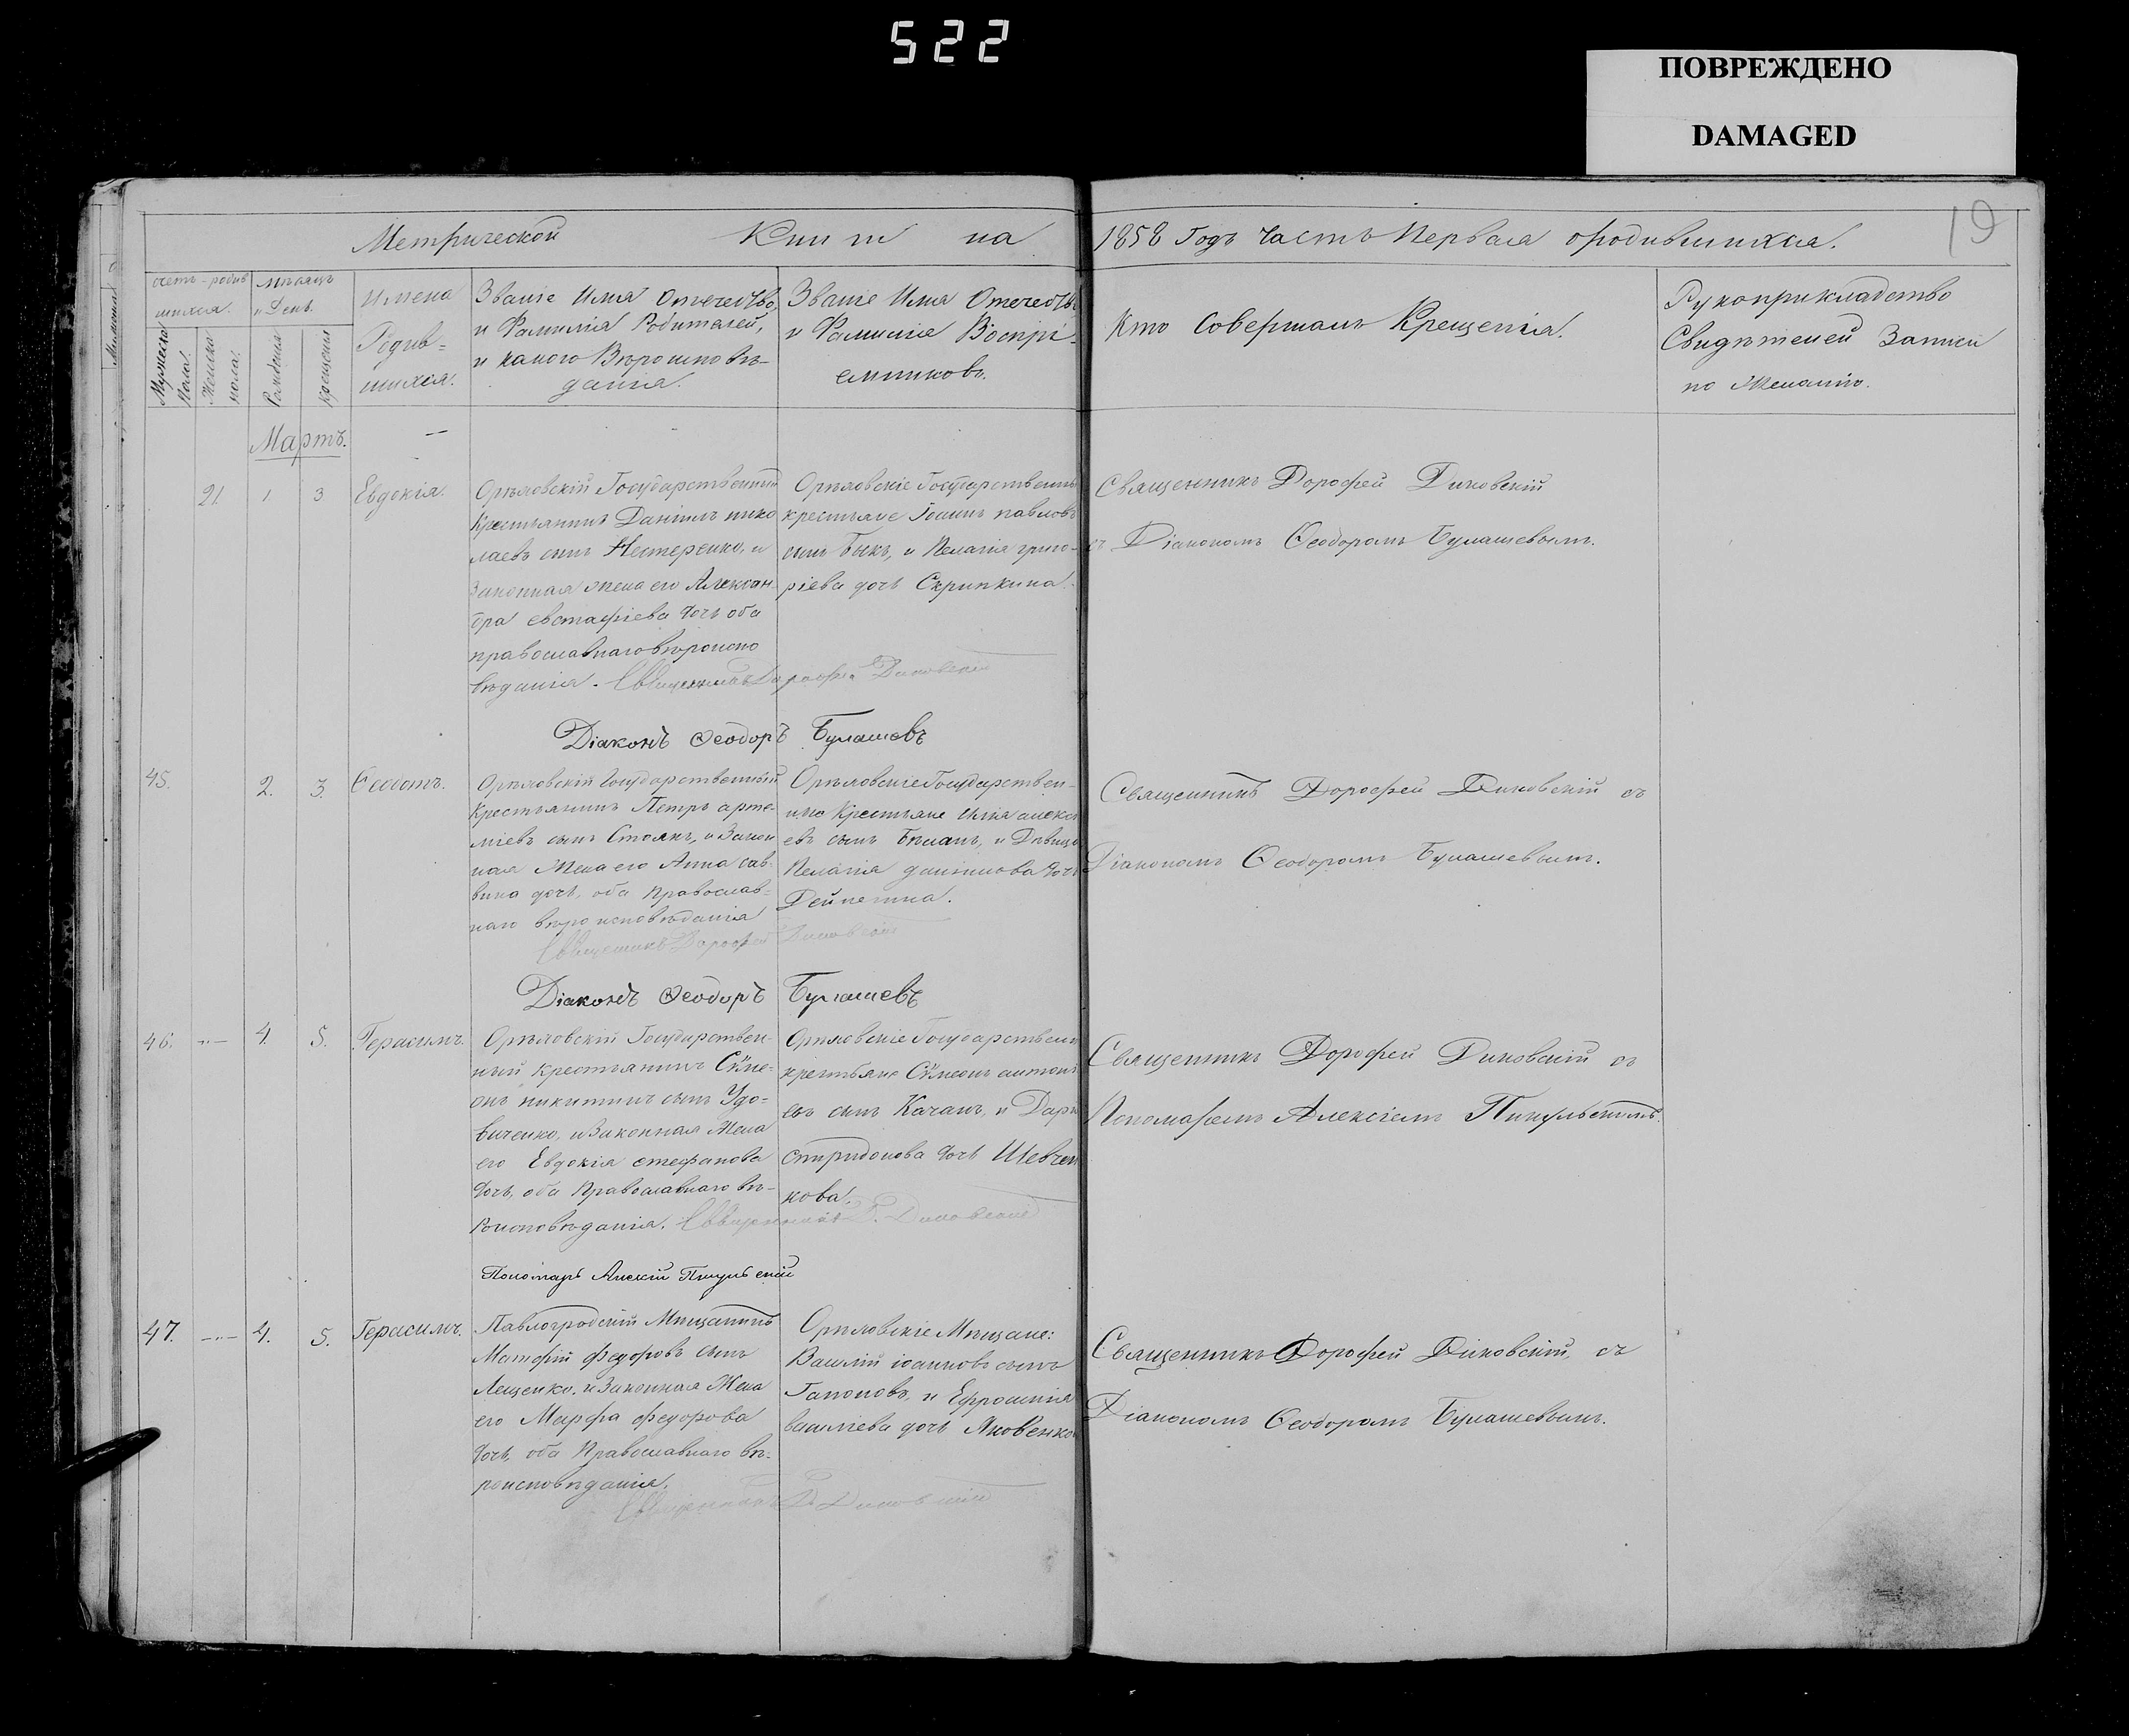 522
ПОВРЕЖДЕНО
DAMAGED
19
Метрической Книги на 1858 Годъ Часть Первая о родившихся.
счетъ родив
шихся.
Мужеска
пола.
Женска
пола.
Мѣсяцъ
и День.
Рожденія
Крещенія
Имена
Родив=
шихся.
Званіе Имя Отечество,
и Фамилія Родителей,
и какого Вѣроисповѣ-
данія.
Званіе Имя Отечеств
и Фамилія Воспрі-
емниковъ.
Кто Совершалъ Крещенія.
Рукоприкладство
Свидѣтелей Записи
по Желанію.
Мартъ. —
21 1 3 Евдокія.
Орѣховскій Государственный
Крестьянинъ Даніилъ нико
лаевъ сынъ Нестеренко, и
Законная жена его Алексан-
дра евстафіева дочь оба
православнаго вѣроиспо
вѣданія. Священникъ Дорофей Диковскій
Діаконъ Ѳеодоръ Булашевъ
Орѣховскіе Государственн
крестьяне Іоаннъ павловъ
сынъ Быкъ, и Пелагія григо-
ріева дочь Скрипкина.
Священникъ Дорофей Диковскій
съ Діакономъ Ѳеодоромъ Булашевымъ.
45. 2. 3. Ѳеодотъ.
Орѣховскій Государственный
Крестьянинъ Петръ арте-
міевъ сынъ Стоянъ, и Закон
ная Жена его Анна сав-
вина дочь, оба Православ-
наго вѣроисповѣданія
Священникъ Дорофей Диковскій
Діаконъ Ѳеодоръ Булашевъ
Орѣховскіе Государствен-
ные Крестьяне Илія алексі
евъ сынъ Бѣланъ, и Дѣвица
Пелагія даніилова дочь
Священникъ Дорофей Диковскій съ
Діакономъ Ѳеодоромъ Булашевымъ.
46. -"- 4. 5. Герасимъ.
Орѣховскій Государствен-
ный крестьянинъ Сѵме-
онъ никитинъ сынъ Удо-
виченко, и Законная Жена
его Евдокія стефанова
дочь, оба Православнаго вѣ-
роисповѣданія. Священникъ Д. Диковскій
Пономарь Алексій Пикульскій
Орѣховскіе Государственн
крестьяне Сѵмеонъ антоні
евъ сынъ Качанъ, и Дарі
спиридонова дочь Шевчен
кова.
Священникъ Дорофей Диковскій съ
Пономаремъ Алексіемъ Пикульскимъ.
47. -"- 4. 5. Герасимъ.
Павлогродскій Мѣщанинъ
Матфій федоровъ сынъ
Лещенко, и Законная Жена
его Марфа федорова
дочь, оба Православнаго вѣ-
роисповѣданія.
Священникъ Д. Диковскій
Орѣховскіе Мѣщане:
Василій іоанновъ сынъ
Гапоновъ, и Ефросинія
василіева дочь Яковенков
Священникъ Дорофей Диковскій, съ
Діакономъ Ѳеодоромъ Булашевымъ.